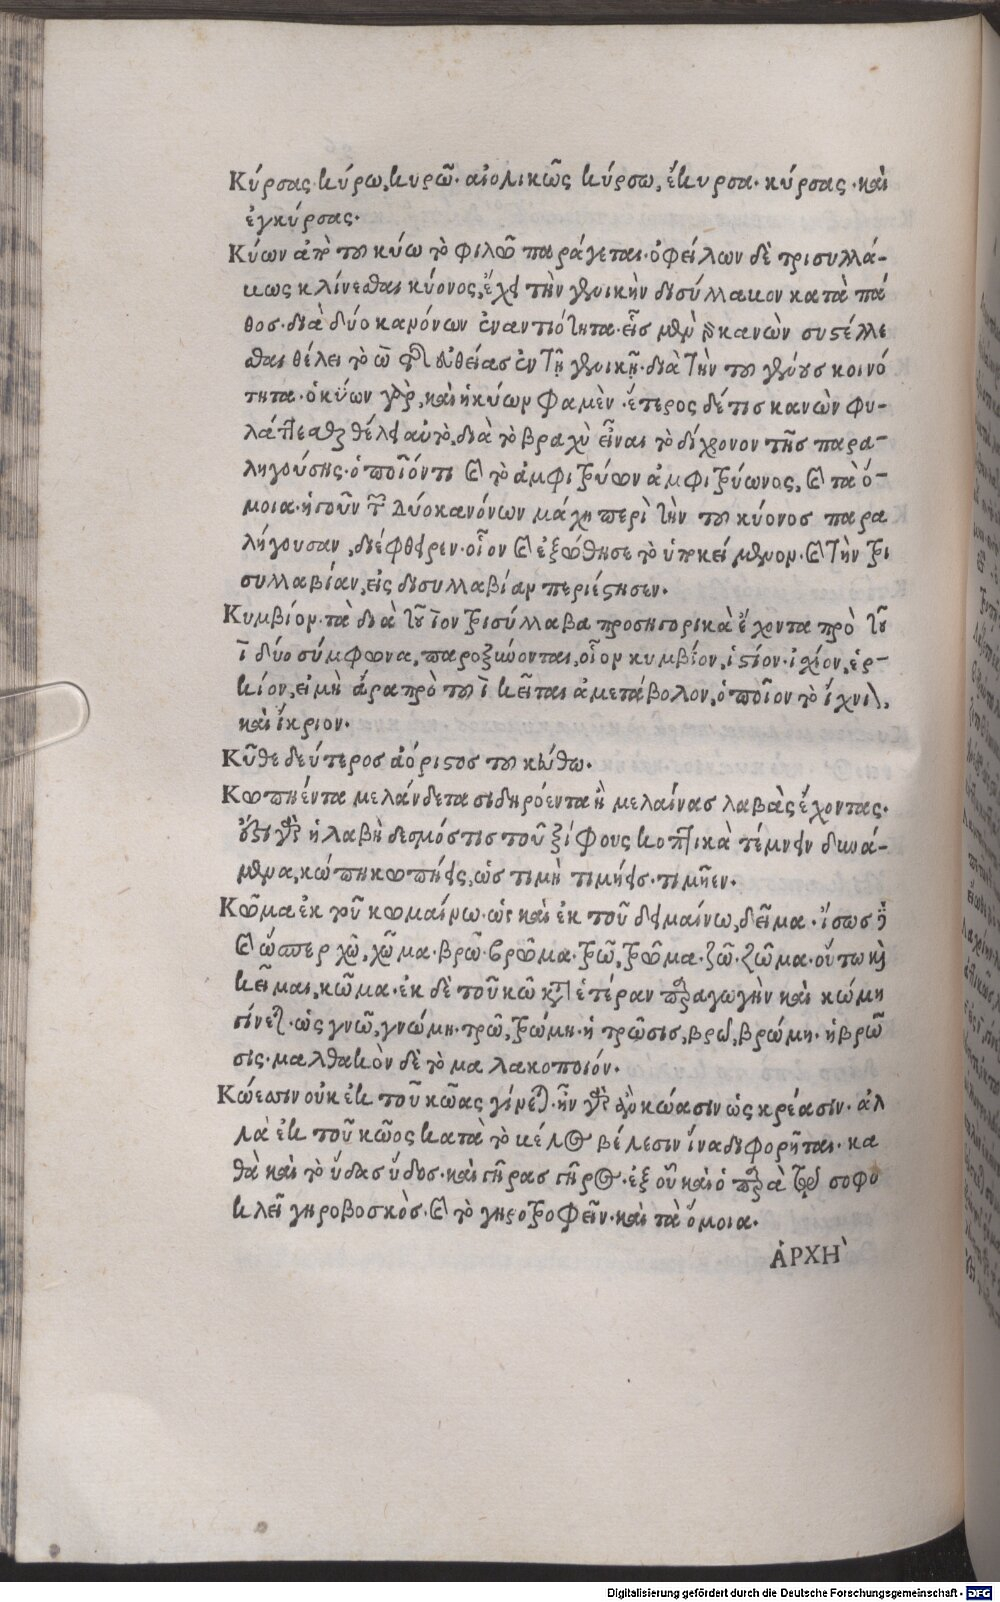 Κύρσας. κύρω, κυρῶ. αἰολικῶς κύρσω, ἔκυρσα. κύρσας. καὶ
ἐγκύρσας.
Κύων ἀπὸ τοῦ κύω τὸ φιλῶ παράγεται. ὀφείλων δὲ τρισυλλά-
βως κλίνεσθαι κύονος, ἔχει τὴν γενικὴν δισύλλαβον κατὰ πά
θος. διὰ δύο κανόνων ἐναντιότητα. εἷσ μὲν γὰρ κανὼν συστέλλε
σθαι θέλει τὸ ω τῆς εὐθείασ ἐν τῇ γενικῇ. διὰ τὴν τοῦ γένουσ κοινό
τητα. ὁ κύων γὰρ, καὶ ἡ κύων φαμὲν. ἕτερος δέ τισ κανὼν φυ-
λάττεσθαι θέλει αὐτὸ, διὰ τὸ βραχὺ εἶναι τὸ δίχρονον τῆσ παρα-
ληγούσης. ὁποῖόν τι καὶ τὸ ἀμφικτύων ἀμφικτύωνος, καὶ τὰ ὅ-
μοια. ἡ γοῦν τῶν δύο κανόνων μάχη περὶ τὴν τοῦ κύονοσ παρα
λήγουσαν, διέφθειρεν. οἷον καὶ ἐξώθησε τὸ ὑποκείμενον. καὶ τὴν τρι
συλλαβίαν, εἰς δισυλλαβίαν περιέστησεν.
Κυμβίον. τὰ διὰ τοῦ ϊον τρισύλλαβα προσηγορικὰ ἔχοντα πρὸ τοῦ
ῑ δύο σύμφωνα, παροξύνονται, οἷον κυμβίον, ἱστίον. ἰσχίον, ἑρ-
κίον, εἰ μὴ ἄρα πρὸ τοῦ ῑ κεῖται ἀμετάβολον, ὁποῖον τὸ ἴχνιον,
καὶ ἴκριον.
Κῦθε δεύτεροσ ἀόριστοσ τοῦ κεύθω.
Κωπήεντα μελάνδετα σιδηρόεντα ἢ μελαίνασ λαβὰς ἔχοντας.
ἔστι γὰρ ἡ λαβὴ δεσμόσ τισ τοῦ ξίφους κοπτικὰ τέμνειν δυνά-
μενα, κώπη κωπήεις, ὡσ τιμὴ τιμήεισ. τιμῆεν.
Κῶμα ἐκ τοῦ κωμαίνω. ὡς καὶ ἐκ τοῦ δειμαίνω, δεῖμα. ἴσωσ δὲ
καὶ ὥσπερ χῶ, χῶμα. βρῶ. βρῶμα. τρῶ, τρῶμα. ζῶ. ζῶμα. οὕτω καὶ
κεῖμαι, κῶμα. ἐκ δὲ τοῦ κῶ κατὰ ἑτέραν παραγωγὴν καὶ κώμη
γίνεται. ὡς γνῶ, γνώμη. τρῶ, τρώμη. ἡ τρῶσισ, βρῶ, βρώμη. ἡ βρῶ
σις. μαλθακὸν δὲ τὸ μαλακοποιόν.
Κώεσιν οὐκ ἐκ τοῦ κῶας γίνεται. ἦν γὰρ ἂν κώασιν ὡς κρέασιν. ἀλ
λὰ ἐκ τοῦ κῶος κατὰ τὸ βέλος βέλεσιν ἵνα διφορῆται. κα
θὰ καὶ τὸ ὕδασ ὕδοσ. καὶ γῆρασ γῆρος. ἐξ οὗ καὶ ὁ παρὰ τῷ σοφο
κλεῖ γηροβοσκὸσ. καὶ τὸ γηροτροφεῖν. καὶ τὰ ὅμοια.
ἈΡΧΗ`
Digitalisierung gefördert durch die Deutsche Forschungsgemeinschaft - DFG